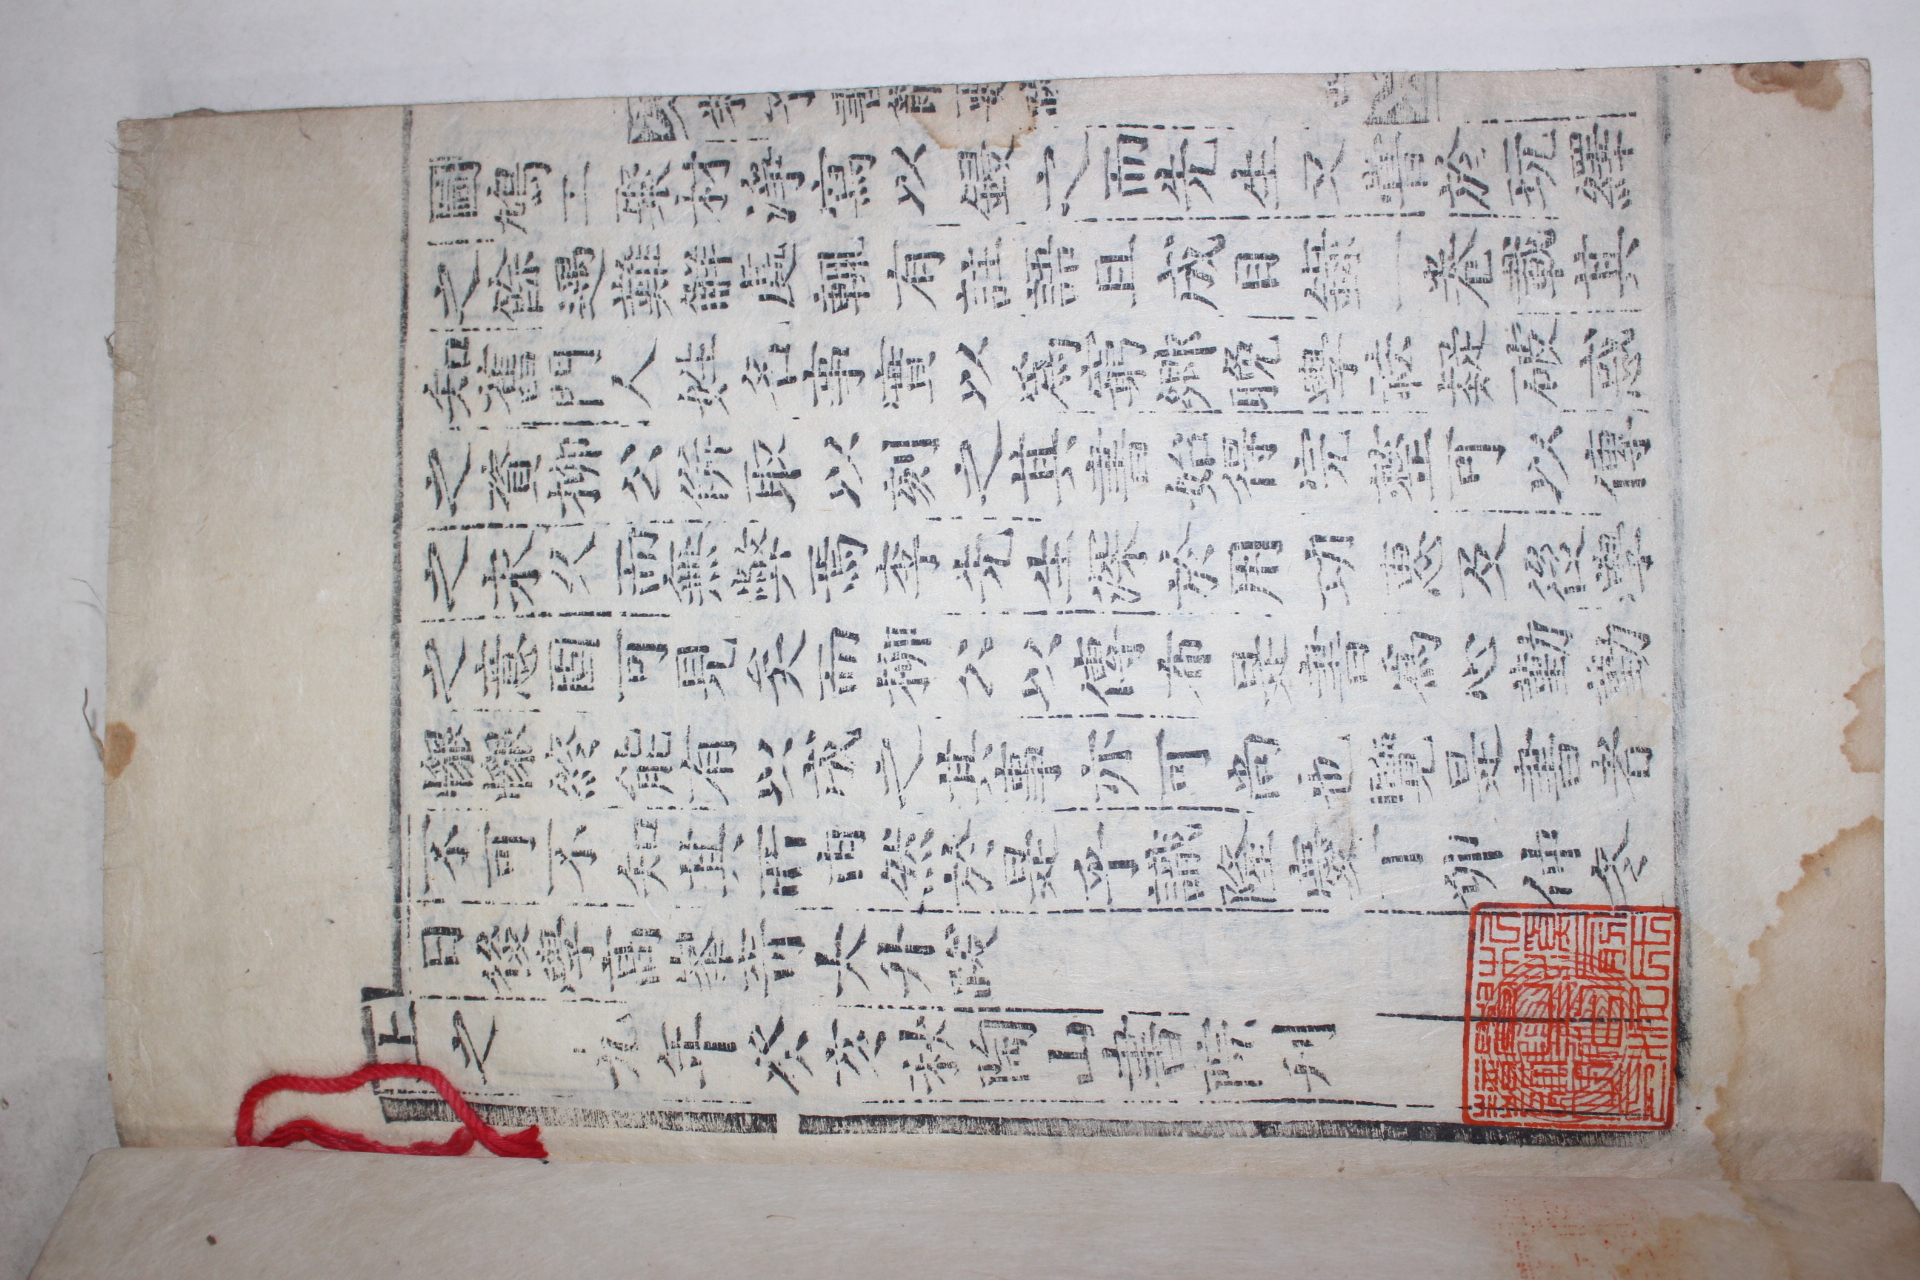 圖鳩工聚材淨寫以鋟之而先生又嘗於玩繹
之餘遇難解處輒有註語且成目錄一卷載其
知舊門人姓名事實以為窮鄉晚學祛疑破惑
之資柳公倂取以刻之其書始得完整可以傳
之永久而無弊焉李先生深於用功惠及後學
之意固可見矣而柳公以傳布是書為心勤勤
懇懇終能有以成之其事亦可尚也覽是書者
不可不知其所由然於是乎識隆慶丁卯仲冬
日後學高峯奇大升跋
上之 九年癸亥秋陶山書院刊